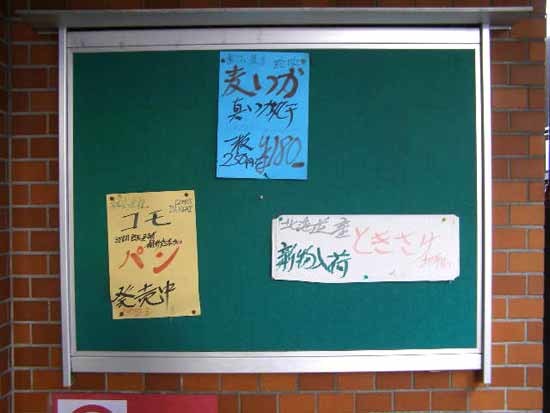 麦いか
真いか
一枚
250円 ¥180
コモ
パン
発売中
北海道産
ときさけ
新物入荷